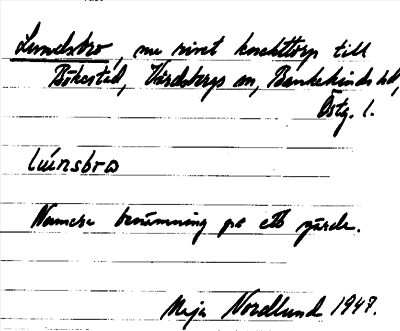 Lundsbro, nu rivet knekttorp till
Bökestad, Värdsbergs sn, Bankekinds hd,
Östg. l.
lúnsbro
Numera benämning på ett gärde.
Maja Nordlund 1947.